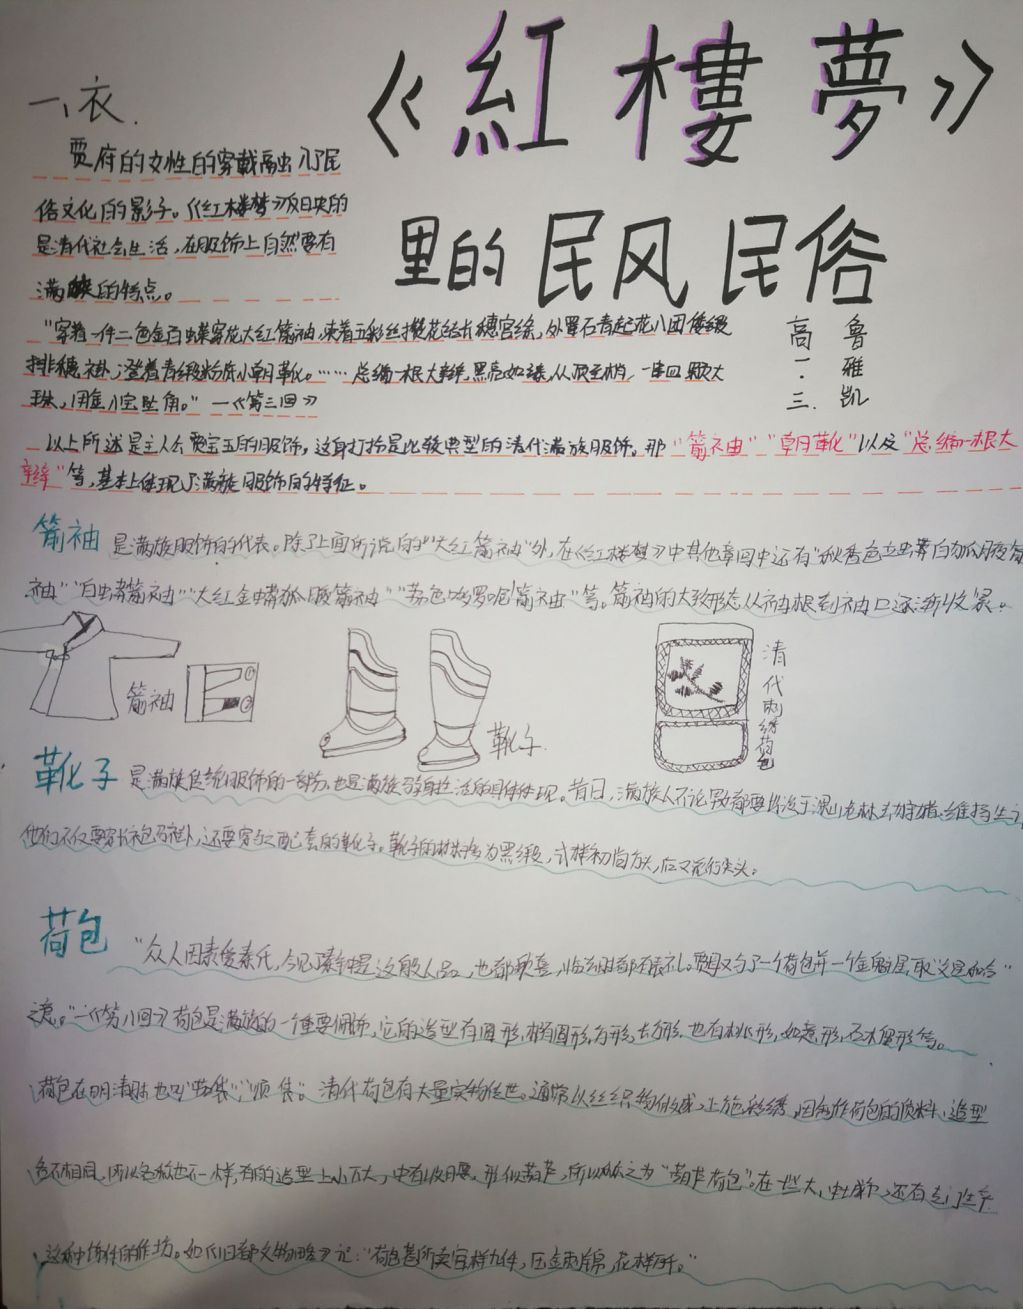 《紅樓夢》
里的民风民俗
高一.三. 鲁雅凯
一、衣.
贾府的女性的穿戴高出了民
俗文化的影子。《红楼梦》反映的
是清代社会生活，在服饰上自然要有
满族的特点。
"穿着一件二色金百蝶穿花大红箭袖，束着五彩丝攒花结长穗宫绦，外罩石青起花八团倭缎
排穗褂，登着青缎粉底小朝靴。……总编一根大辫，黑亮如漆，从顶至梢，一串四颗大
珠，用金八宝坠角。"—《第三回》
以上所述是主人公贾宝玉的服饰，这身打扮是比较典型的清代满族服饰。那"箭袖""朝靴"以及"总编一根大
辫"等，基本上体现了满族服饰的特征。
箭袖 是满族服饰的代表。除了上面所说的"大红箭袖"外，在《红楼梦》中其他章回中还有"秋香色立蟒白狐腋箭
袖""白蟒箭袖""大红金蟒狐腋箭袖""荔色哆罗呢箭袖"等。箭袖的大致形态从袖根到袖口逐渐收紧。
箭袖 ① ②
靴子.
清代刺绣荷包
靴子 是满族传统服饰的一部分，也是满族骑射生活的具体体现。昔日，满族人不论男女都要出没于深山老林去狩猎、维持生计
他们不仅要穿长袍马褂，还要穿与之配套的靴子。靴子的材料为黑缎，式样初尚方头，后又流行尖头。
荷包 "众人因素爱秦氏，今见了秦钟是这般人品，也都欢喜，临别时都有表礼。贾母又与了一个荷包并一个金魁星，取"文星和合"
之意。"—《第八回》荷包是满族的一个重要佩饰，它的造型有圆形，椭圆形，方形，长方形，也有桃形，如意形，石榴形等。
荷包在明清时也叫"茄袋"，"顺袋"。清代荷包有大量实物传世。通常以丝织物做成，上施彩绣，因制作荷包的质料、造型
各不相同，所以名称也不一样，有的造型上小下大，中有收腰，形似葫芦，所以称之为"葫芦荷包"。在一些大，中城市，还有专门生产
这种饰件的作坊。如《旧都文物略》记："荷包巷所卖官样九件，压金刺锦，花样。"